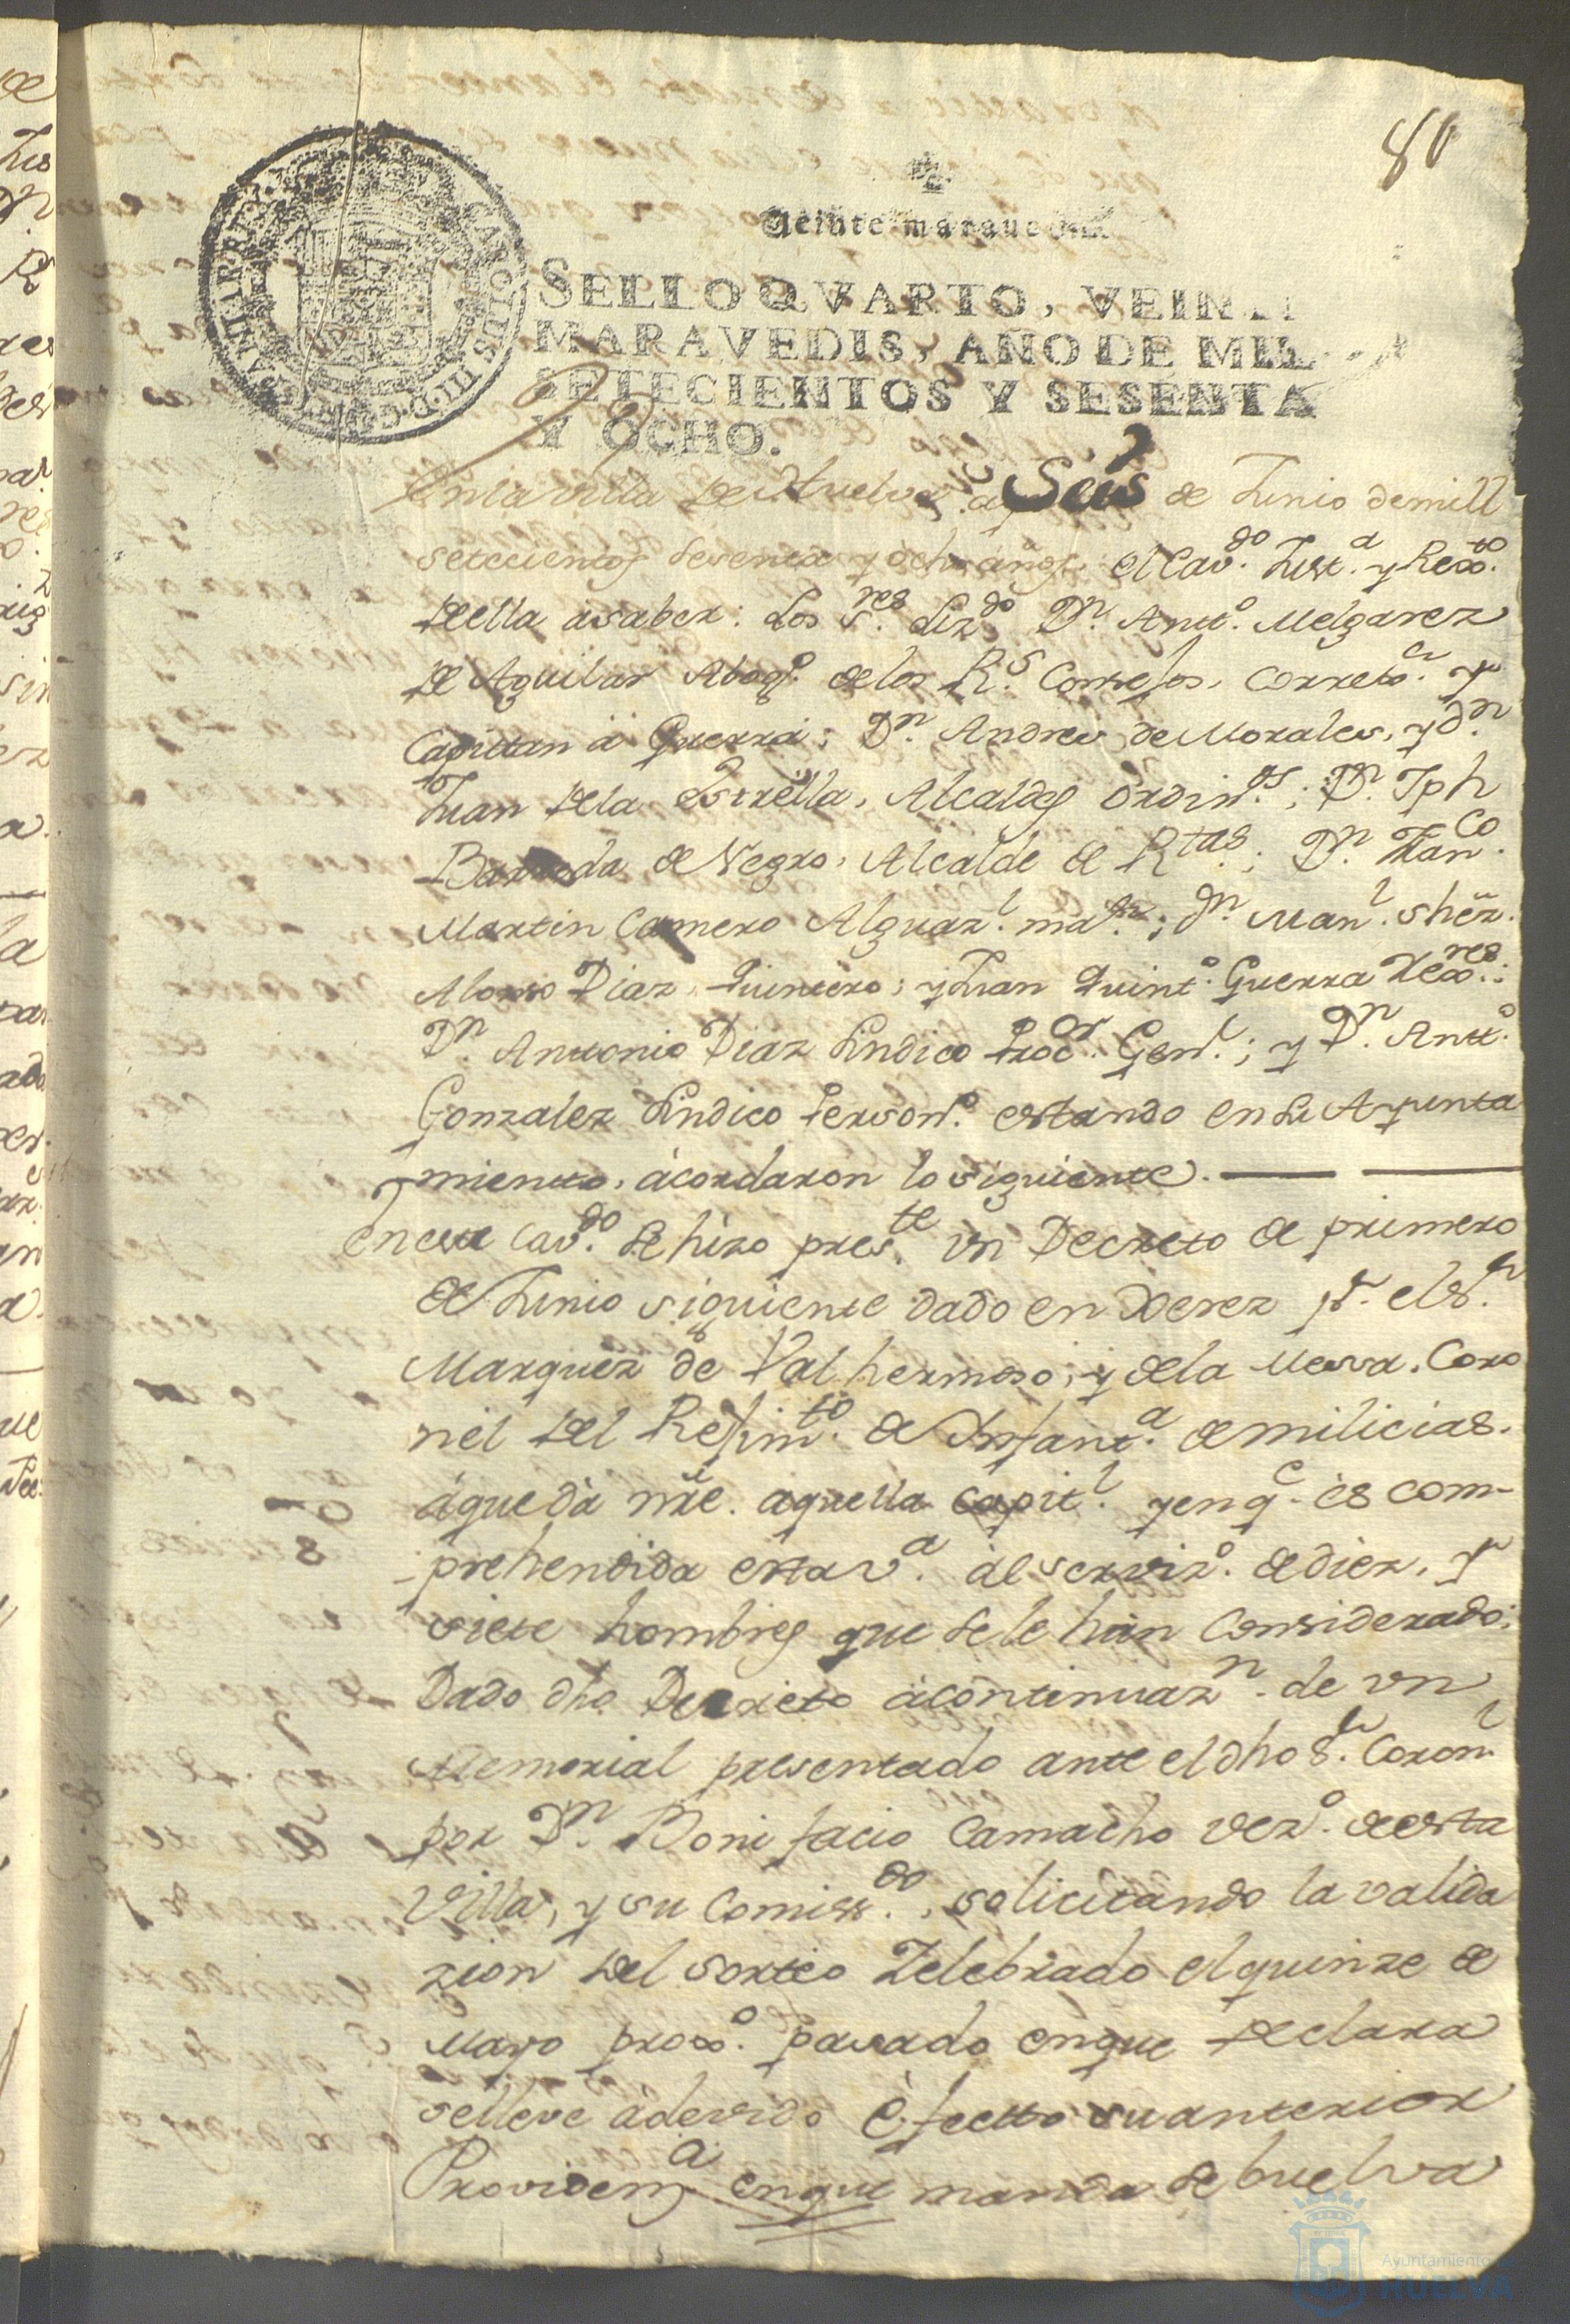 80
Veinte maravedis.
SELLO QVARTO, VEINTE
MARAVEDIS, AÑO DE MIL
SETECIENTOS Y SESENTA
Y OCHO.
En la villa de Huelva, a Seis de Junio de mill
setecientos sesenta y ocho años, el Cav.do Just.a y Rex.to
de ella asaber: Los S.res Liz.do D.n Ant.o Melgarez
de Aguilar Abog.o de los R.s Consejos, Correx.r y
Capittan â Guerra; D.n Andres de Morales, y d.n
Juan de la Estrella, Alcaldes Ordin.os; D.n Jph
Barreda de Negro, Alcalde de R.tas; D.n Fran.co
Martin Camero Alguaz.l ma.r; d.n Man.l Shez.
Alonso Diaz Quintero; y Juan Quint.o Guerra Rex.res:
D.n Anttonio Diaz Sindico Proc.or Gen.l; y D.n Antt.o
Gonzalez Sindico Person.o estando en su Ayunta
miento, acordaron lo siguiente.
En este Cav.do se hizo pres.te un Decreto de primero
de Junio siguiente dado en Xerez p.r el S.r
Marquez de Valhermoso, y de la Mesa. Coro
nel del Rejim.to de Infant.a de milicias.
á que dà nre. aquella Capit.l y en q.e es com-
prehendida esta v.a al serviz.o de diez, y
siete hombres que se le han Considerado:
Dado dho Decreto à continuaz.n de un
Memorial presentado ante el dho S.r Coron.l
por D.n Bonifacio Camacho vez.o de esta
Villa, y su Comiss.do, solicitando la valida
zion del sorteo Zelebrado el quinze de
Mayo prox.o pasado en que declara
se lleve à devido Efectto su anterior
Providen.a en que manda se buelva
Ayuntamiento de
HUELVA